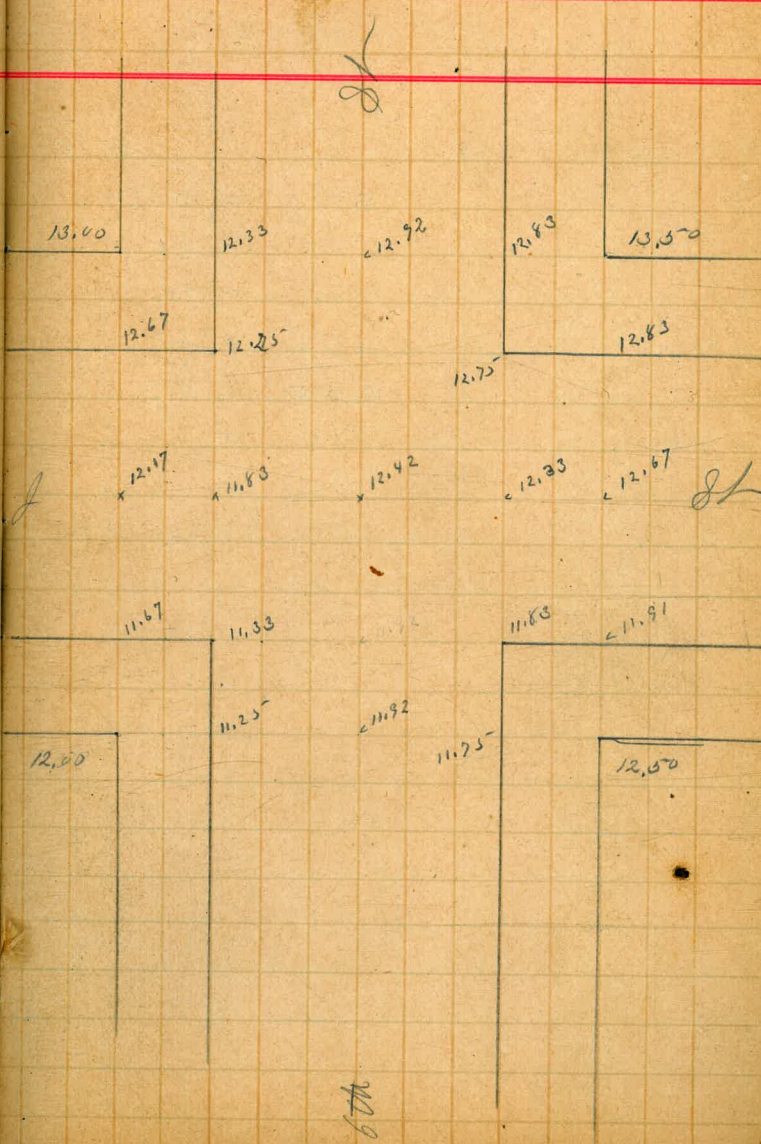 St
13.00 12.33 12.92 12.83 13.50
12.67 12.25 12.83
12.75
J 12.17 11.83 12.42 12.33 12.67 St
11.67 11.33 11.83 11.91
11.25 11.92
11.75
12.00 12.50
6th